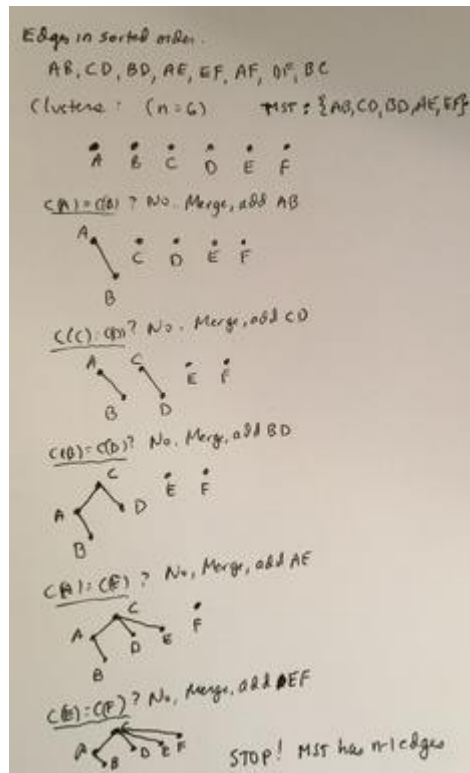 Edges in sorted order.
AB, CD, BD, AE, EF, AF, DF, BC
Clusters: (n=6) MST: {AB, CD, BD, AE, EF}
A B C D E F
C(A)=C(B)? No. Merge, add AB
A
C D E F
B
C(C)=C(D)? No. Merge, add CD
A C E F
B D
C(B)=C(D)? No, Merge, add BD
C E F
A D
B
C(A)=C(E)? No, Merge, add AE
C F
A D E
B
C(E)=C(F)? No, Merge, add EF
C
A B D E F
STOP! MST has n-1 edges